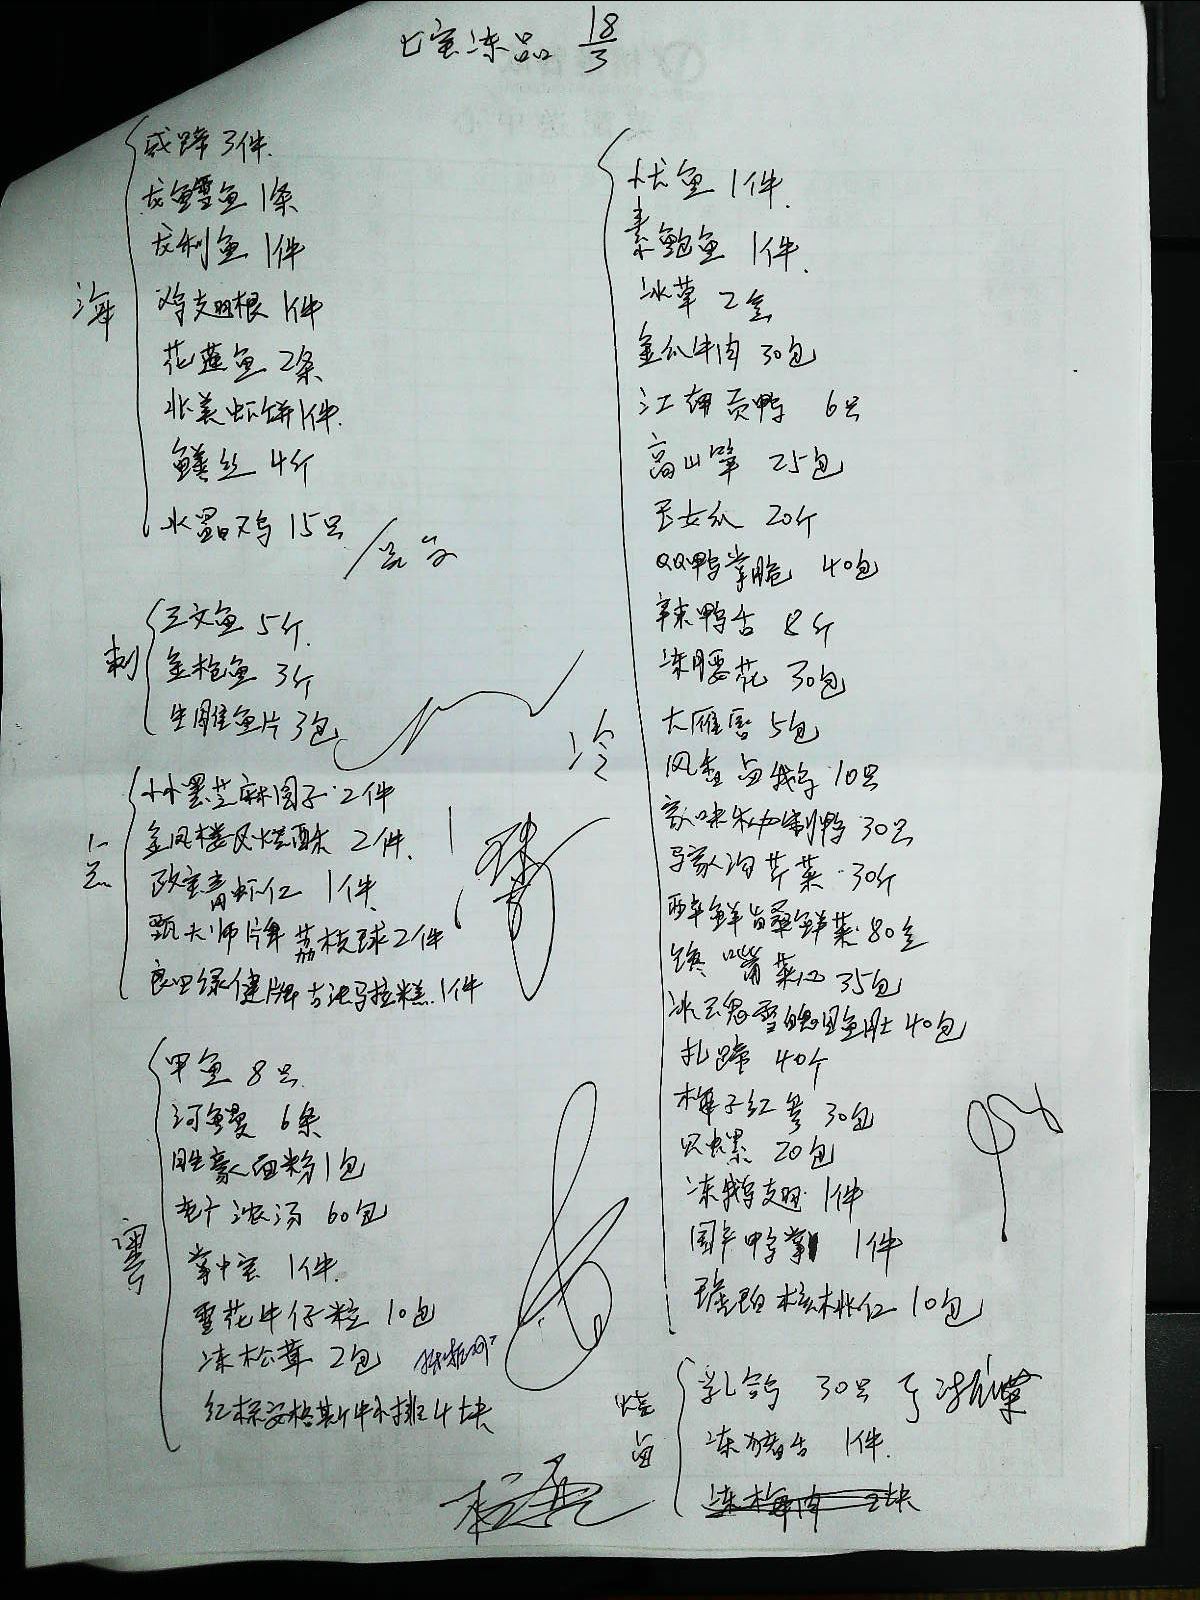 七宝冻品 18/3
海
咸蹄 3件
龙鱼雪鱼 1条
龙利鱼 1件
鸡翅根 1件
花莲鱼 2条
北美虾饼 1件
鳝丝 4斤
水晶鸡 15只
刺
三文鱼 5斤
金枪鱼 3斤
生雕鱼片 3包
点
小小黑芝麻园子 2件
金凤楼叉烧酥 2件
政宝青虾仁 1件
甄大师牌荔枝球 2件
良田绿健牌古法马拉糕 1件
粤
甲鱼 8只
河鳗 6条
胜豪面粉 1包
老干浓汤 60包
掌中宝 1件
雪花牛仔粒 10包
冻松茸 2包
红标安格斯牛小排 4块
冷
小尤鱼 1件
素鲍鱼 1件
冰草 2盒
金瓜牛肉 30包
江南贡鸭 6只
高山笋 25包
玉女瓜 20斤
QQ鸭掌脆 40包
辣鸭舌 8斤
冻腰花 30包
大雁唇 5包
风香卤鹅 10只
家味秘制鸭 30只
马家沟芹菜 30斤
醉鲜旨桑鲜菜 80盒
嘴菜心 35包
鱼肚 40包
扎蹄 40个
梅子红 30包
贝螺 20包
冻鹅翅 1件
国产鸭掌 1件
琥珀核桃仁 10包
烧卤
乳鸽 30只
冻猪舌 1件
冻梅肉 2块